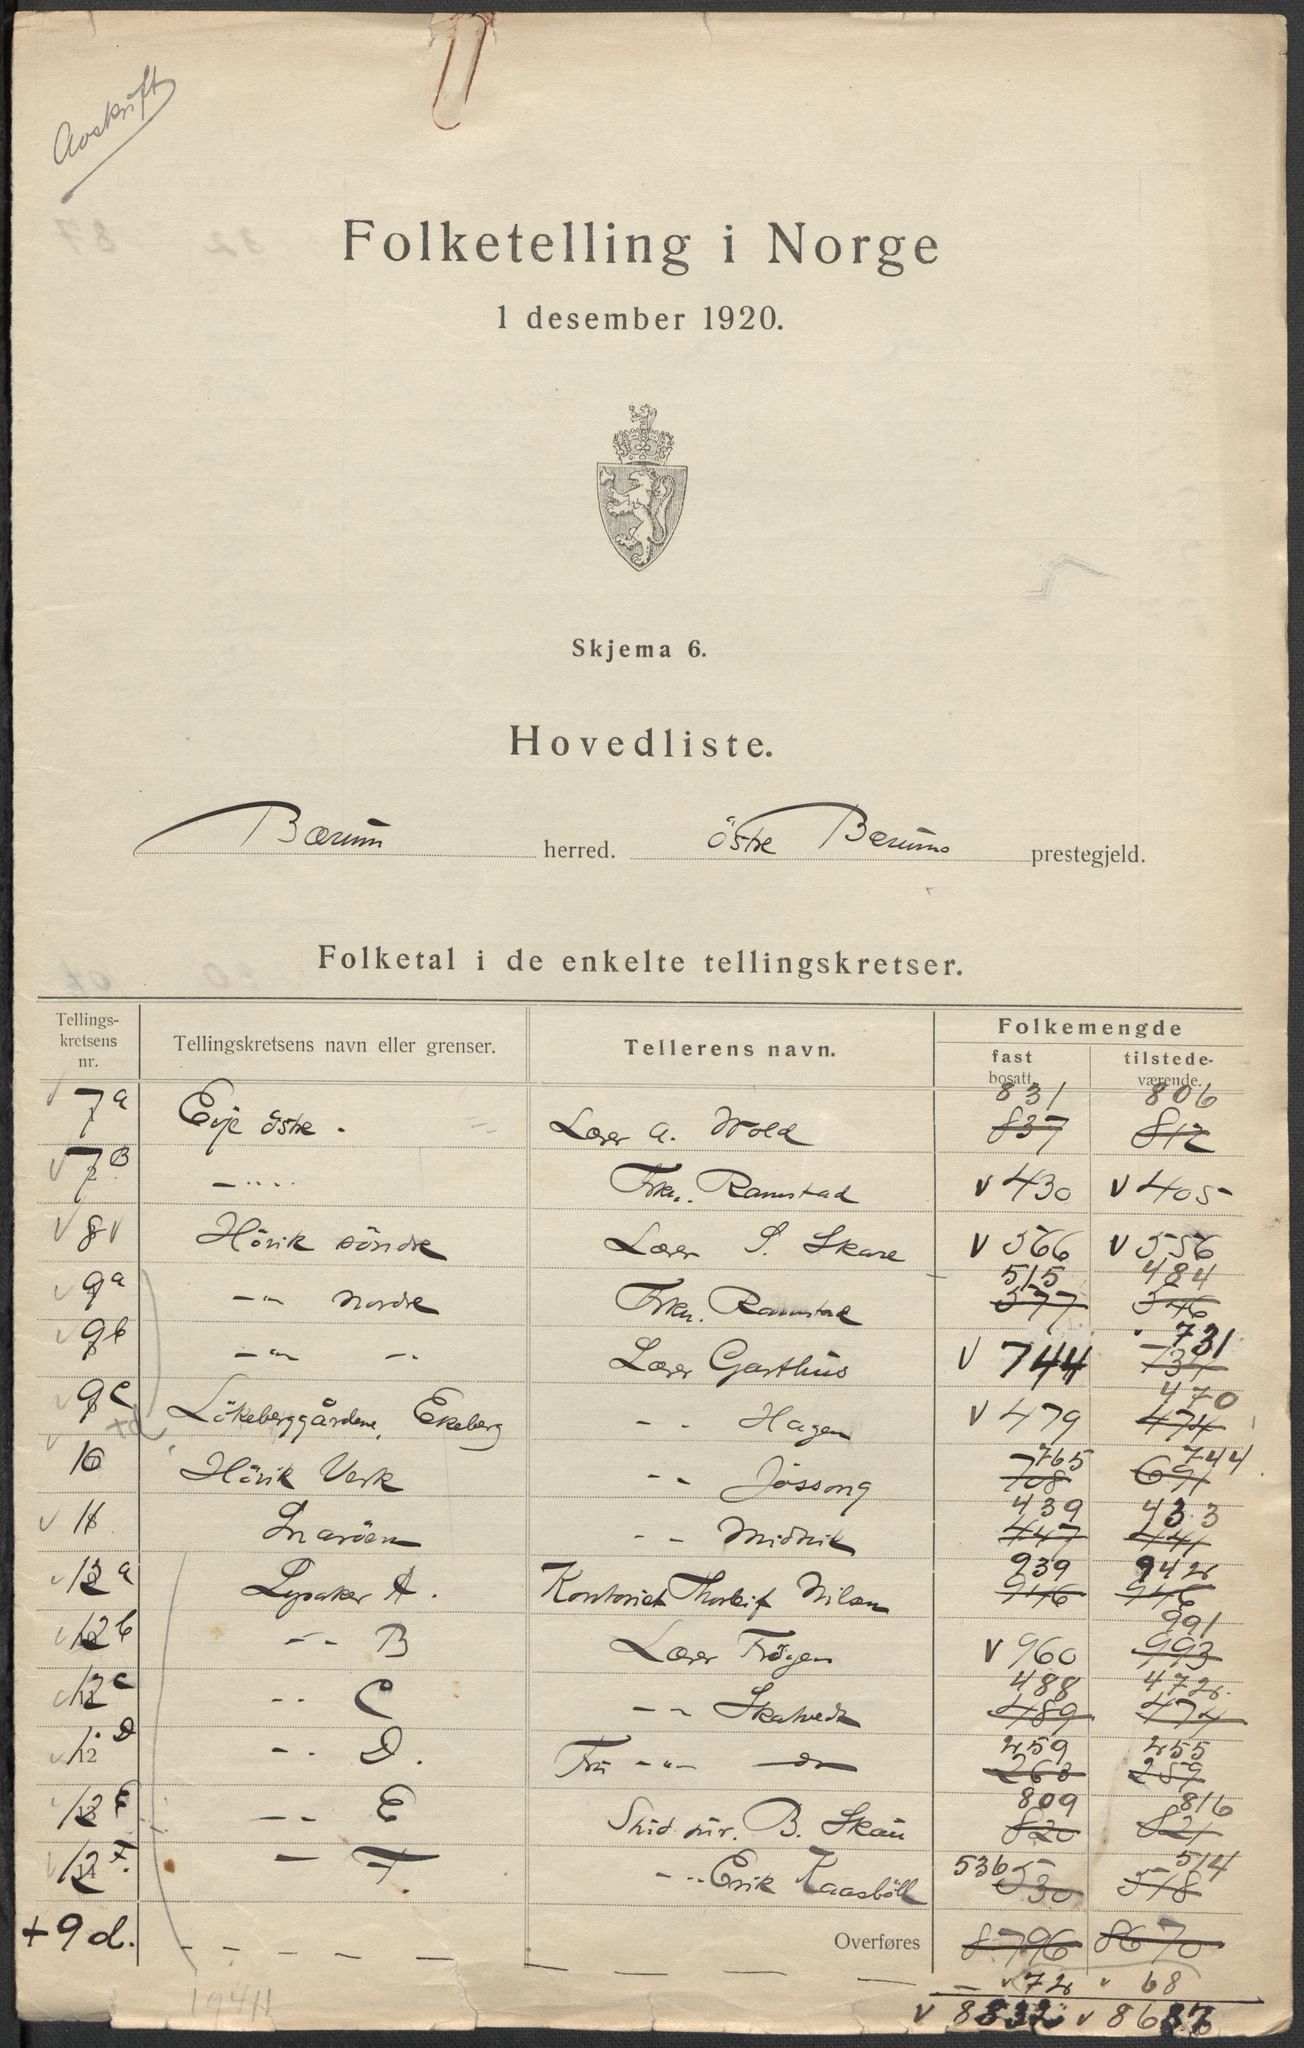 Avskrift
Folketelling i Norge
1 desember 1920.
Skjema 6.
Hovedliste.
Bærum herred. Östre Bærums prestegjeld.
Folketal i de enkelte tellingskretser.
Tellingskretsens nr. Tellingskretsens navn eller grenser. Tellerens navn. Folkemengde
fast bosatt. tilstedeværende.
831 806
7a Evje östre. Lærer A. Wold 837 812
7B -"- Frkn. Ramstad v 430 v 405
v 8 v Hövik söndre Lærer S. Skare v 566 v 556
515 484
9a -"- Nordre Frkn. Ramstad 577 546
731
9b -"- -"- Lærer Garthus v 744 734
470
9c Lökeberggårdene, Ekeberg -"- Hagen v 479 474
765 744
10 Hövik Verk -"- Jössong 708 691
439 433
v 11 Snaröen -"- Midvik 447 441
939 942
12a Lysaker A. Kontorist Thorleif Nilsen 946 946
991
12b -"- B Lærer Trögen v 960 993
488 472
12c -"- C -"- Skatvedt 489 474
259 255
12D -"- D. Fru -"- 263 259
809 816
12E -"- E Stud. B. Skau 820 821
536 514
12F. -"- F. -"- Erik Kaasböll 530 518
+ 9d. Overføres 8796 8670
v 72 v 68
1941
v 8832 v 8687